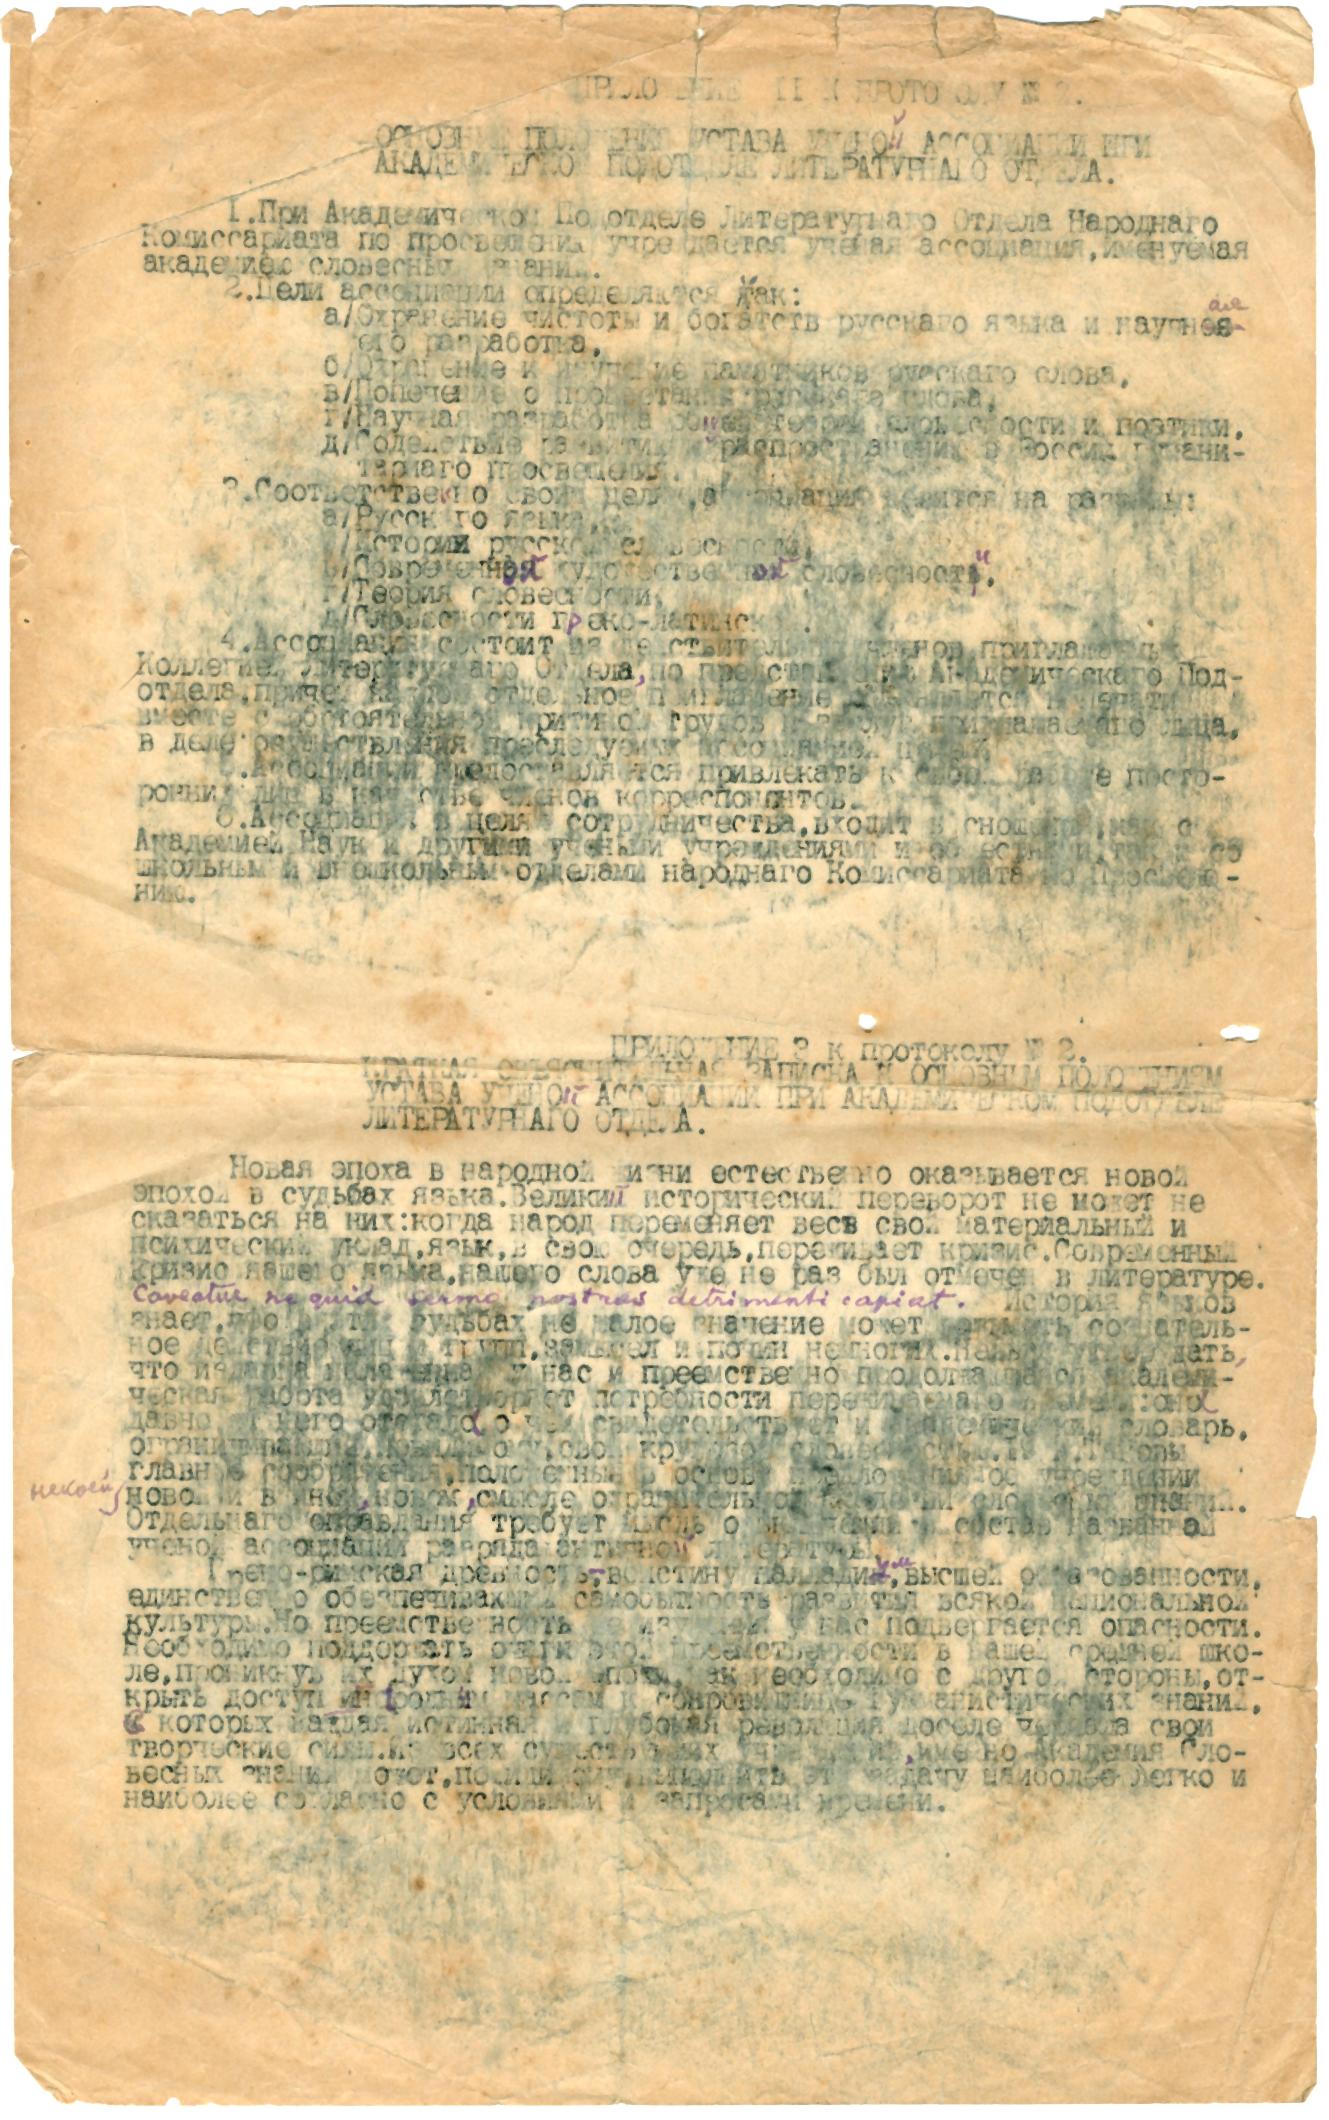 ПРИЛОЖЕНИЕ II К ПРОТОКОЛУ № 2.
ОСНОВНЫЕ ПОЛОЖЕНИЯ УСТАВА УЧЕНОЙ АССОЦИАЦИИ ПРИ
АКАДЕМИЧЕСКОМ ПОДОТДЕЛЕ ЛИТЕРАТУРНАГО ОТДЕЛА.
1.При Академическом Подотделе Литературнаго Отдела Народнаго
Комиссариата по просвещению учреждается ученая ассоциация,именуемая
академией словесных знаний.
2.Цели ассоциации определяются так:
а/Охранение чистоты и богатств русскаго языка и научная
его разработка,
б/Охранение и изучение памятников русскаго слова,
в/Попечение о процветании русскаго слова,
г/Научная разработка общей теории словесности и поэтики,
д/Содействие развитию и распространению в России гумани-
тарнаго просвещения.
3.Соответственно своим целям,ассоциация делится на разряды:
а/Русского языка,
б/Истории русской словесности,
в/Современной художественной словесности,
г/Теория словесности,
д/Словесности греко-латинской.
4.Ассоциация состоит из действительных членов приглашаемых
Коллегией Литературнаго Отдела,по представлению Академическаго Под-
отдела,причем каждое отдельное приглашение в печати
вместе с обстоятельной критикой трудов и заслуг приглашаемаго лица,
в деле осуществления преследуемых ассоциацией целей.
5.Ассоциации предоставляется привлекать к своей работе посто-
ронних лиц в качестве членов корреспондентов.
6.Ассоциация в целях сотрудничества,входит в сношения как с
Академией Наук и другими учеными учреждениями и обществами,так и со
школьным и внешкольным отделами народнаго Комиссариата по Просвеще-
нию.
ПРИЛОЖЕНИЕ 3 к протоколу № 2.
КРАТКАЯ ОБЪЯСНИТЕЛЬНАЯ ЗАПИСКА К ОСНОВНЫМ ПОЛОЖЕНИЯМ
УСТАВА УЧЕНОЙ АССОЦИАЦИИ ПРИ АКАДЕМИЧЕСКОМ ПОДОТДЕЛЕ
ЛИТЕРАТУРНАГО ОТДЕЛА.
Новая эпоха в народной жизни естественно оказывается новой
эпохой в судьбах языка.Великий исторический переворот не может не
сказаться на них:когда народ переменяет весь свой материальный и
психический уклад,язык,в свою очередь,переживает кризис.Современный
кризис нашего языка,нашего слова уже не раз был отмечен в литературе.
Caveatur ne quid sermo nostras detrimenti capiat. История языков
знает,что в этих судьбах не малое значение может иметь сознатель-
ное действие лиц и групп,замысел и почин немногих.Нельзя утверждать,
что издавна у нас и преемственно продолжавшаяся академи-
ческая работа удовлетворяет потребности переживаемаго времени:она
давно от него отстала о чем свидетельствует и академический словарь,
свой круг словесностью. Таковы
главные соображения,положенные в основу предложения об учреждении
некоей
новой и в ином,новом,смысле охранительной академии словесных знаний.
Отдельнаго оправдания требует мысль о включении в состав названной
ученой ассоциации разряда античной литературы.
Греко-римская древность,воистину палладиум,высшей образованности,
единственно обеспечивающий самобытность развития всякой национальной
культуры.Но преемственность ее изучения у нас подвергается опасности.
Необходимо поддержать очаги этой преемственности в нашей средней шко-
ле,проникнув их духом новой эпохи,как необходимо с другой стороны,от-
крыть доступ народным массам к сокровищнице гуманистических знаний,
в которых каждая истинная и глубокая революция доселе черпала свои
творческие силы.Из всех существующих учреждений,именно Академия Сло-
весных знаний может,повидимому,выполнить эту задачу наиболее легко и
наиболее согласно с условиями и запросами времени.